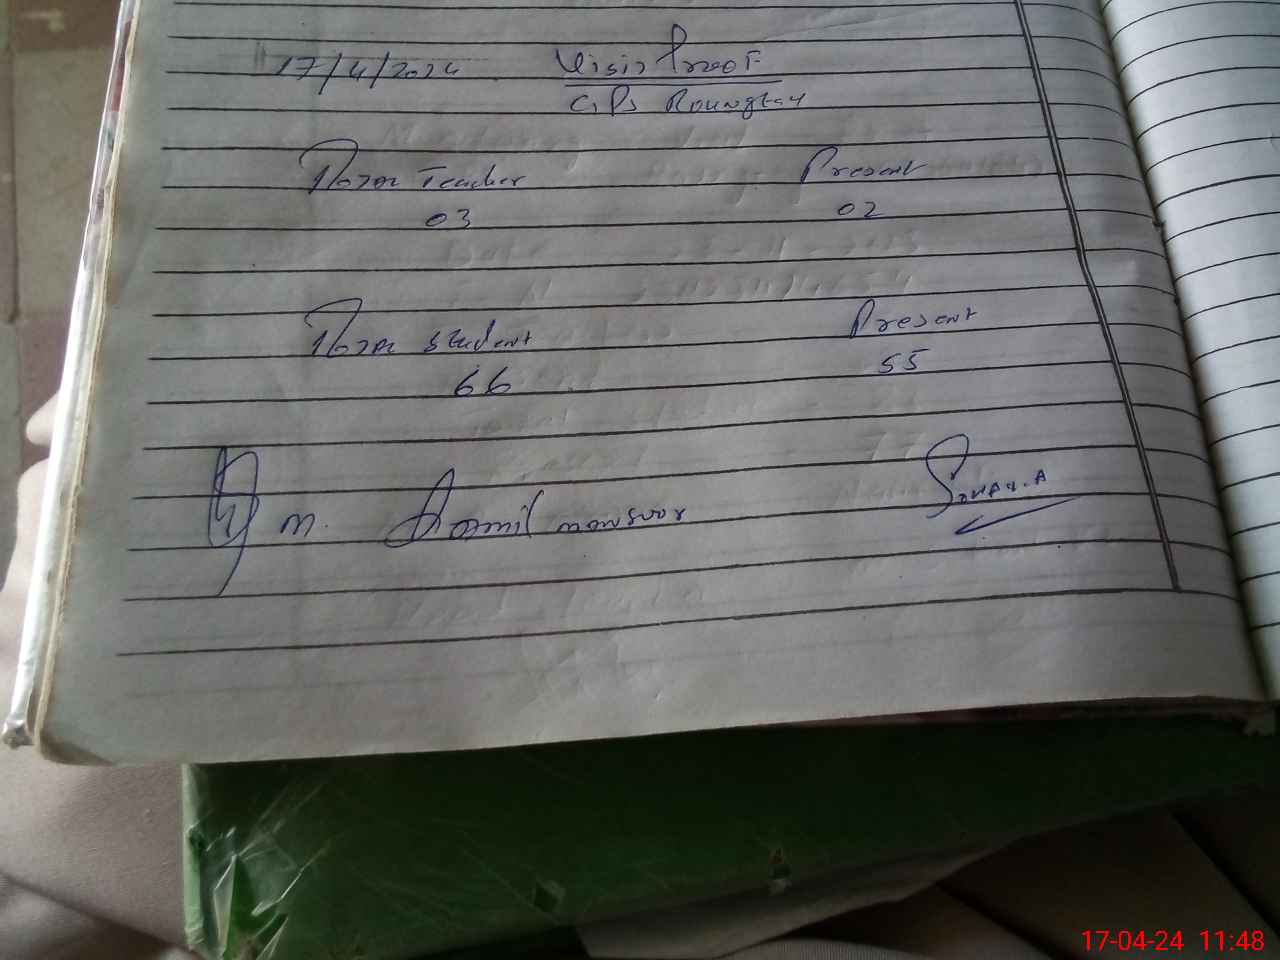 17/4/2024 Visit Proof
GPS Roungtay
Total Teacher Present
03 02
Total Student Present
66 55
M. Jamil mansoor
17-04-24 11:48